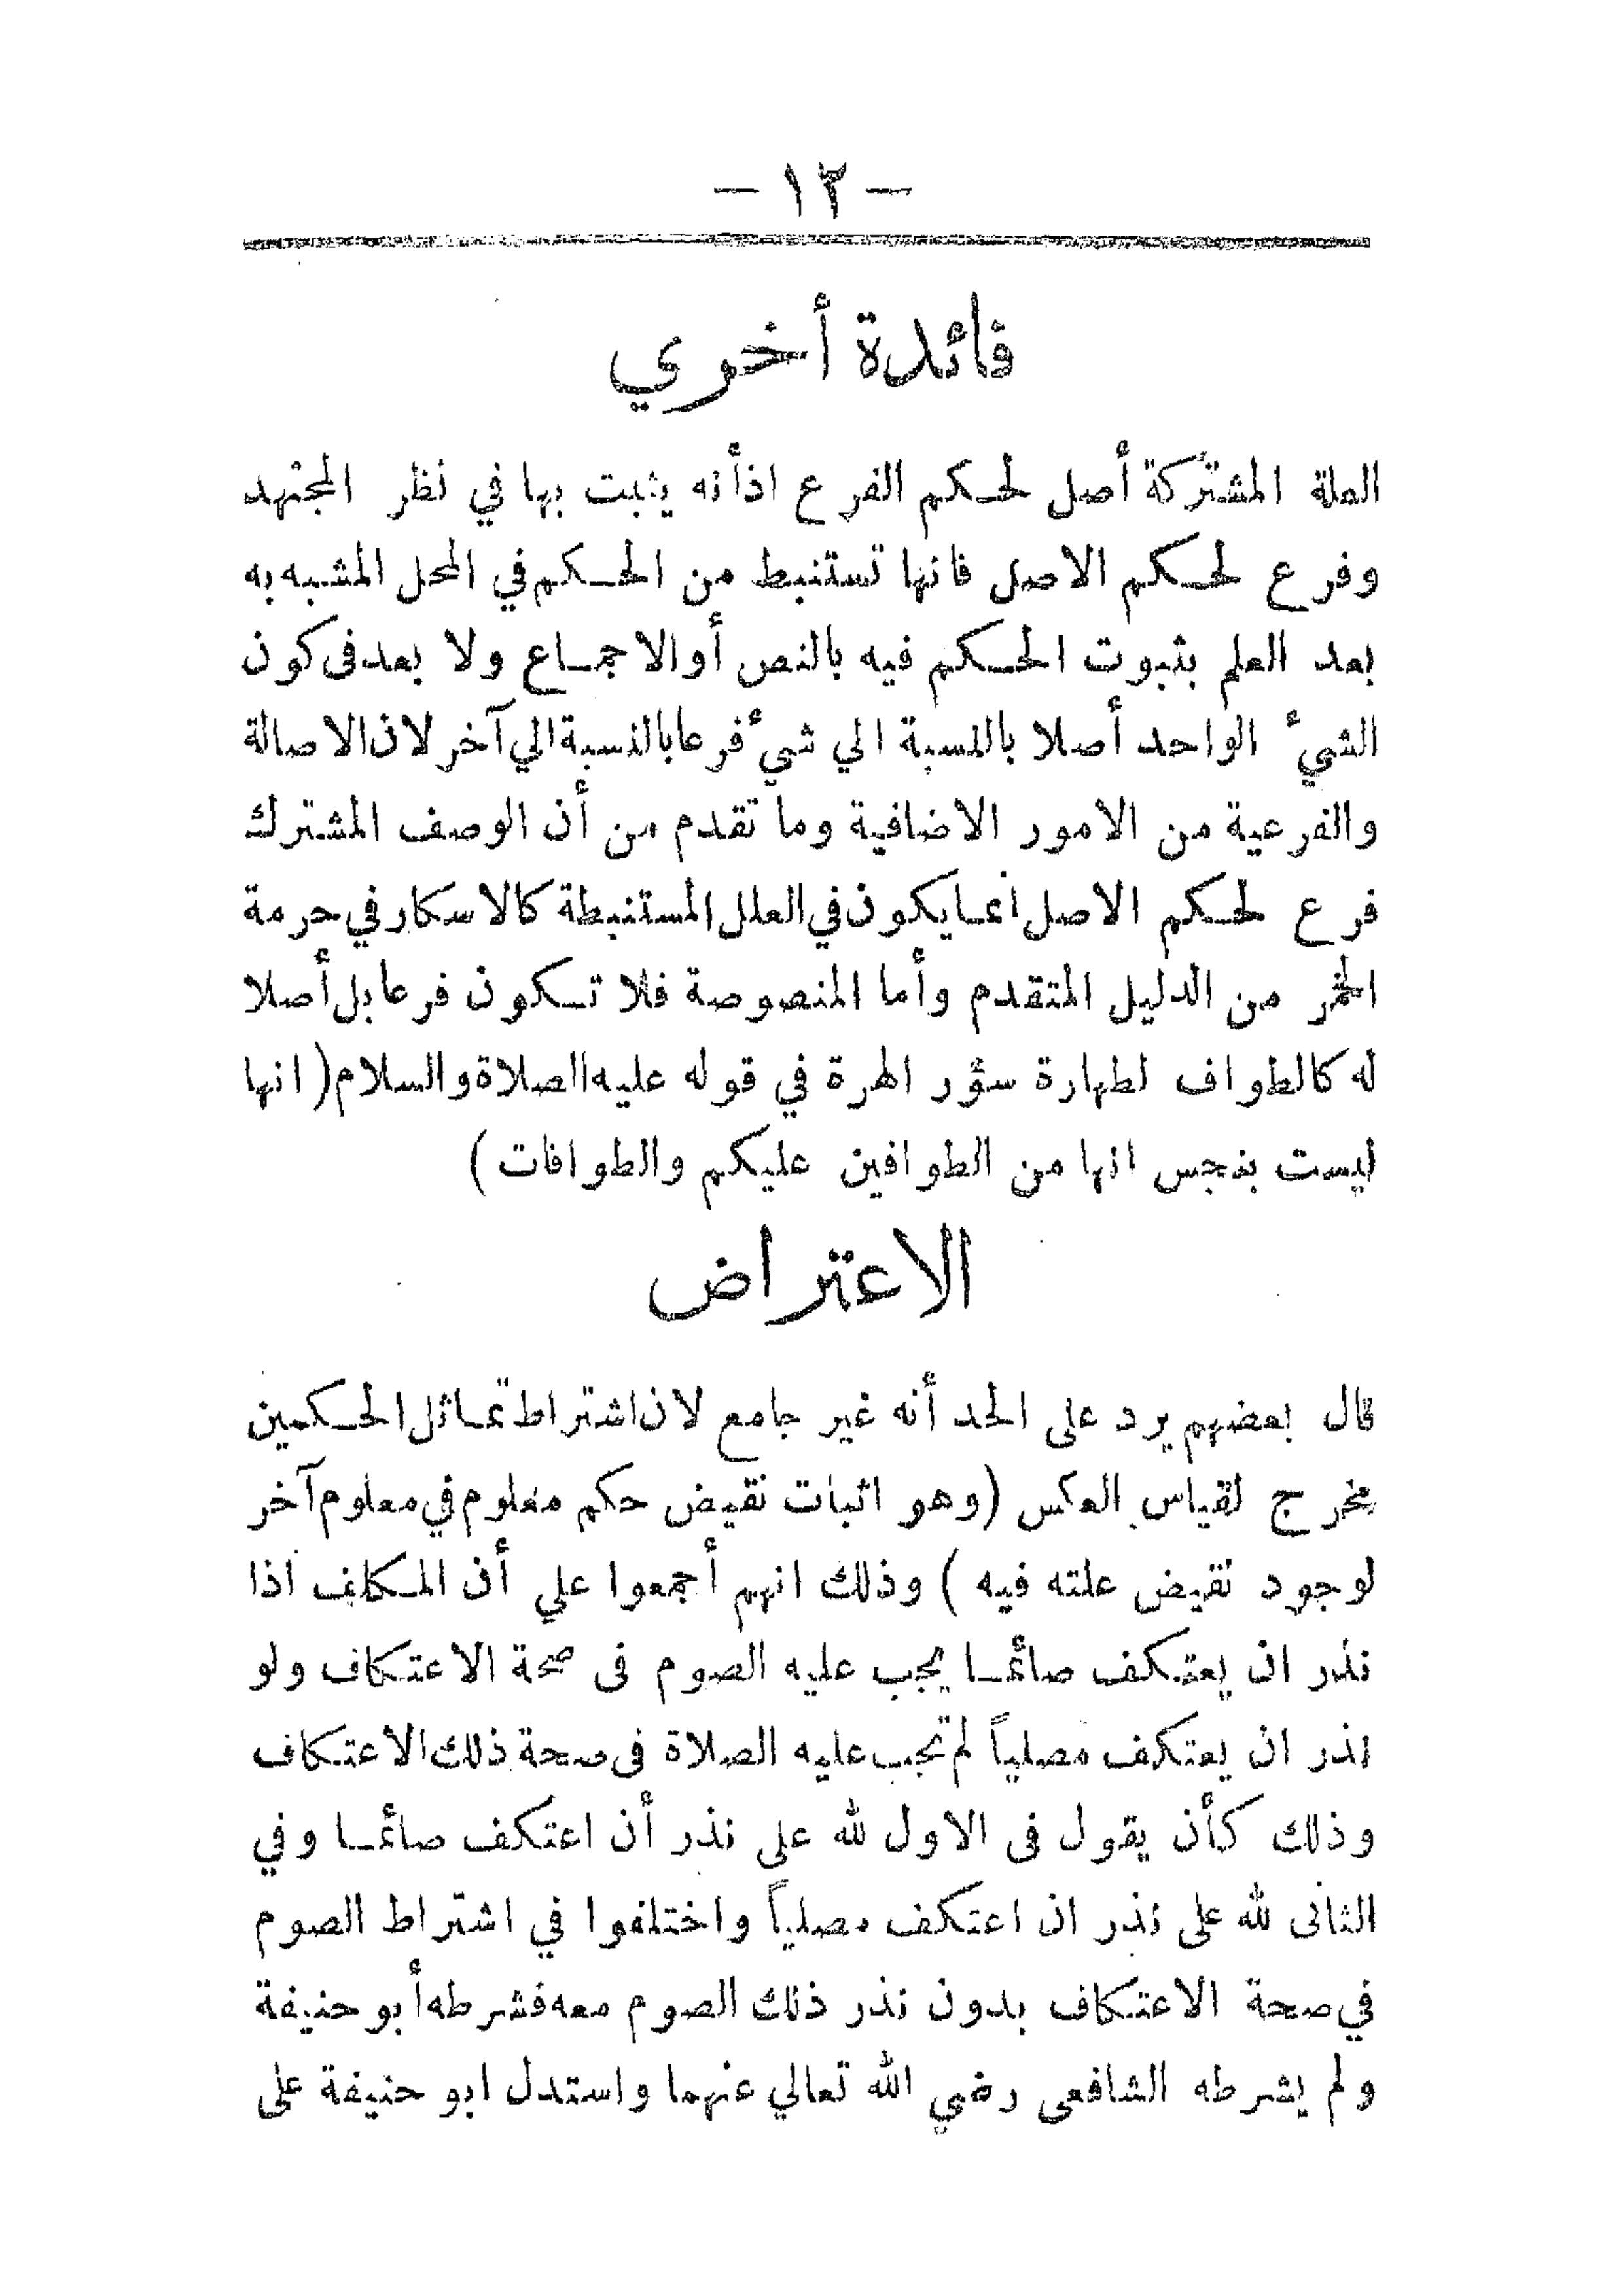 — ١٣ —
فائدة أخري
العلة المشتركة أصل لحكم الفرع اذ أنه يثبت بها في نظر المجتهد
وفرع لحكم الاصل فانها تستنبط من الحكم في المحل المشبه به
بعد العلم بثبوت الحكم فيه بالنص أو الاجماع ولا بعد فى كون
الشيء الواحد أصلا بالنسبة الي شيء فرعا بالنسبة الي آخر لان الاصالة
والفرعية من الامور الاضافية وما تقدم من أن الوصف المشترك
فرع لحكم الاصل انما يكون في العلل المستنبطة كالاسكار في حرمة
الخمر من الدليل المتقدم وأما المنصوصة فلا تكون فرعا بل أصلا
له كالطواف لطهارة سؤر الهرة في قوله عليه الصلاة والسلام ( انها
ليست بنجس انها من الطوافين عليكم والطوافات )
الاعتراض
قال بعضهم يرد على الحد أنه غير جامع لان اشتراط تماثل الحكمين
مخرج لقياس العكس ( وهو اثبات نقيض حكم معلوم في معلوم آخر
لوجود نقيض علته فيه ) وذلك انهم أجمعوا علي أن المكلف اذا
نذر ان يعتكف صائما يجب عليه الصوم فى صحة الاعتكاف ولو
نذر ان يعتكف مصلياً لم تجب عليه الصلاة فى صحة ذلك الاعتكاف
وذلك كأن يقول فى الاول لله على نذر أن اعتكف صائما وفي
الثانى لله على نذر ان اعتكف مصلياً واختلفوا في اشتراط الصوم
في صحة الاعتكاف بدون نذر ذلك الصوم معه فشرطه أبو حنيفة
ولم يشرطه الشافعى رضي الله تعالي عنهما واستدل ابو حنيفة على